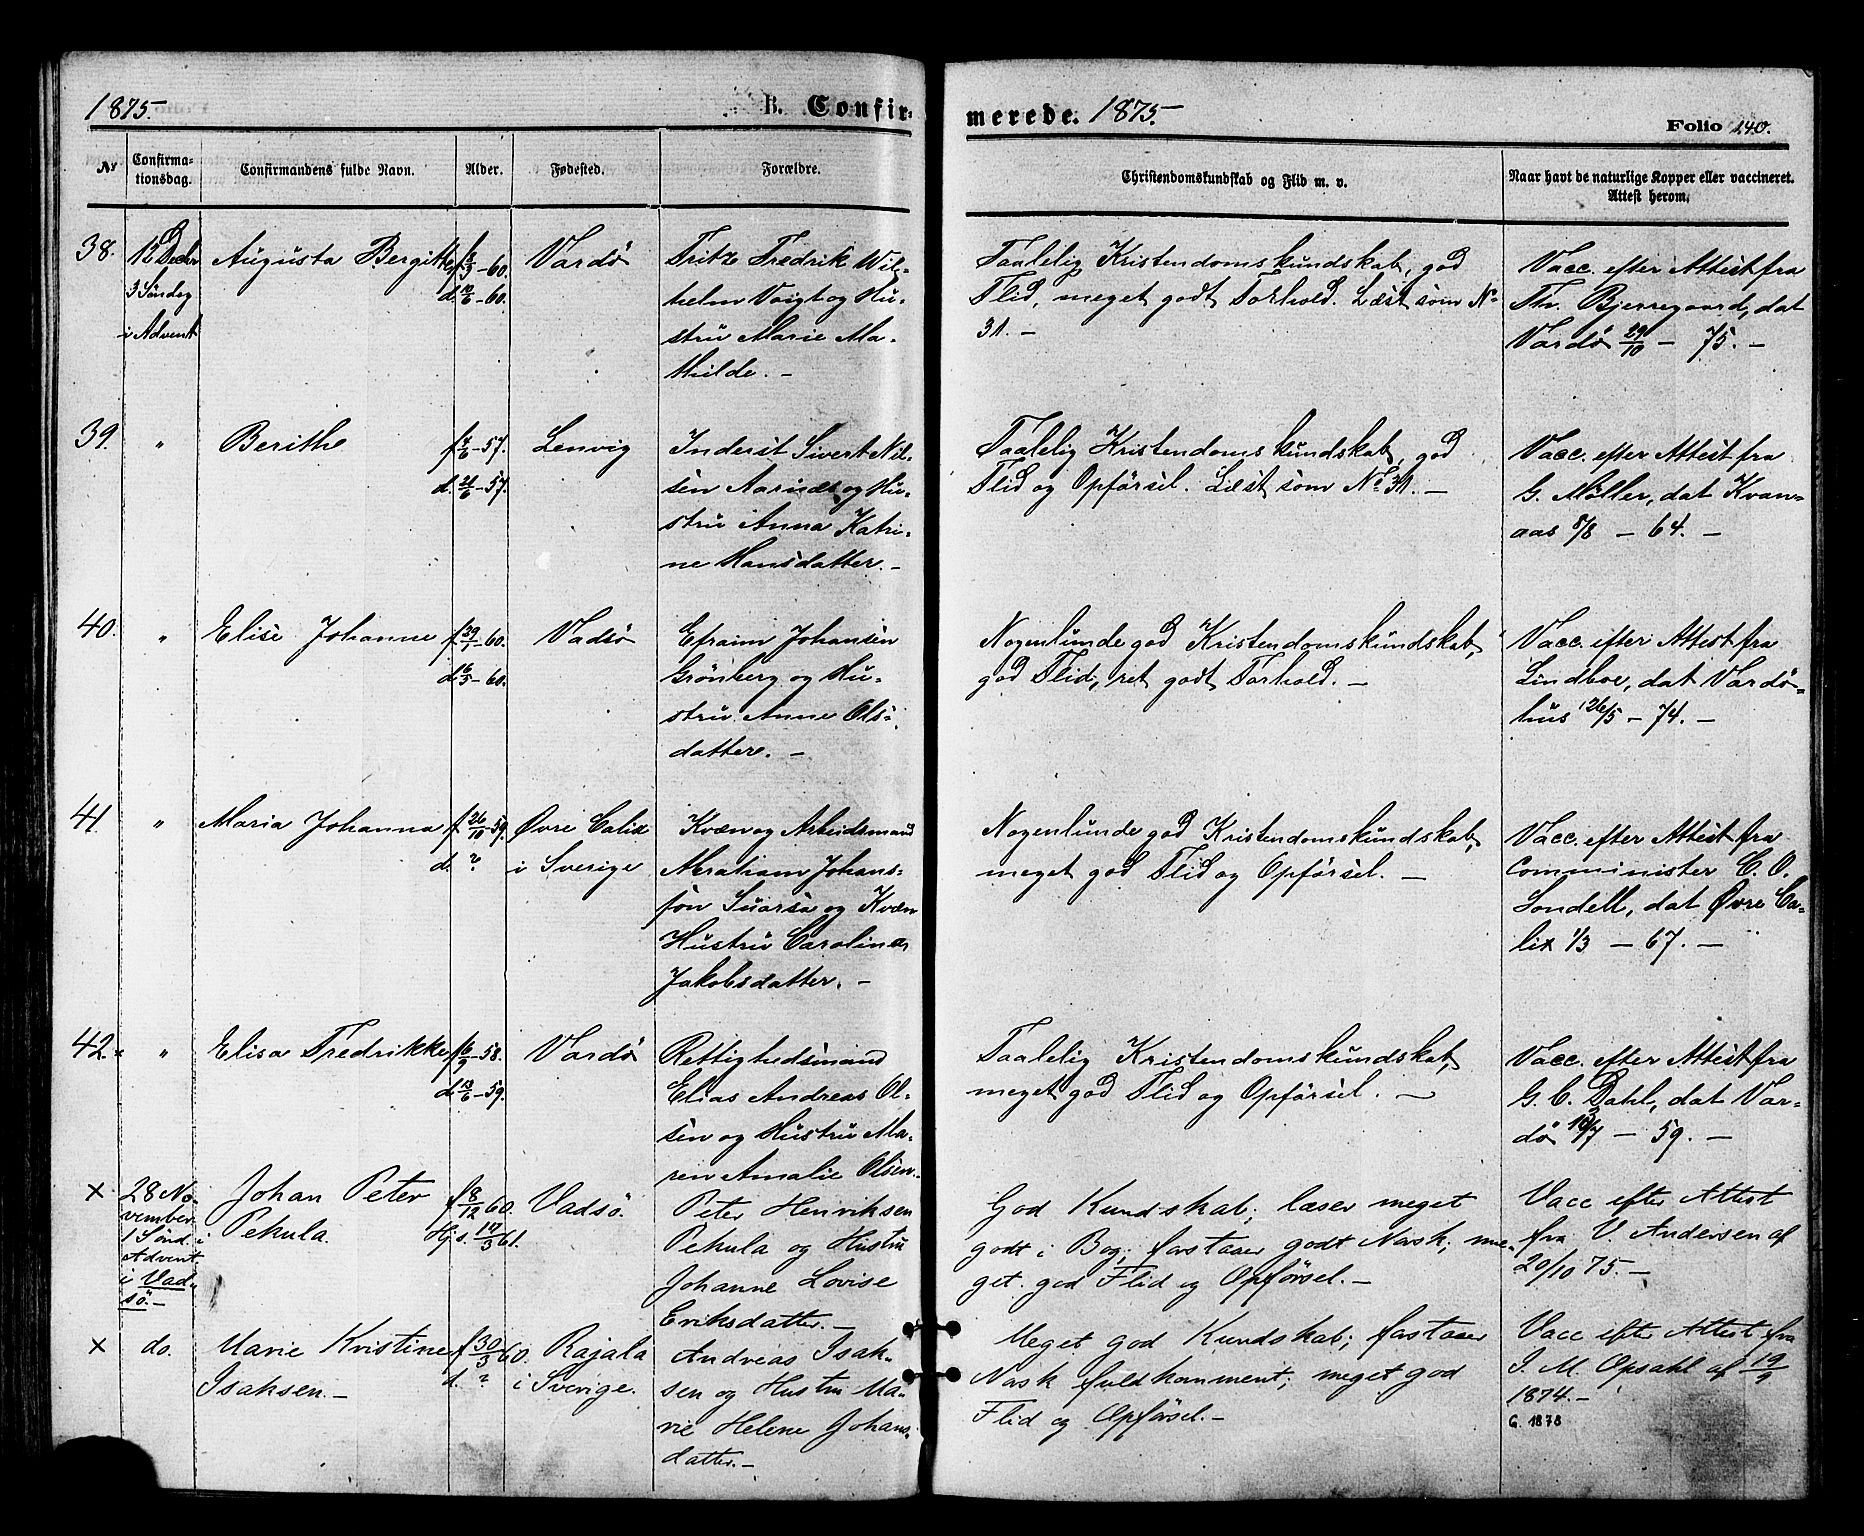 1875.
B. Confir-
merede. 1875.
Folio 240.
No
Confirma-
tionsdag.
Confirmandens fulde Navn.
Alder.
Fødested.
Forældre.
Christendomskundskab og Flid m. v.
Naar havt de naturlige Kopper eller vaccineret.
Attest herom.
38.
12 Decbr
3 Søndag
i Advent
Augusta Bergithe
f. -60.
d. -60.
Vardø
Fritz Fredrik Wil-
helm Voigt og Hu-
stru Marie Ma-
thilde. -
Taalelig Kristendomskundskab, god
Flid, meget godt Forhold. Læst som No
31. -
Vacc. efter Attest fra
Th. Bjerregaard, dat
Vardø 29/10 - 75. -
39.
"
Berithe
f. -57.
d. -57.
Lenvig
Inderst Sivert Nil-
sen og Hu-
stru Anna Katri-
ne Hansdatter. -
Taalelig Kristendomskundskab, god
Flid og Opførsel. Læst som No 31. -
Vacc. efter Attest fra
G. Møller, dat Kvan-
aas 8/8 - 64. -
40.
"
Elise Johanne
f. 29/1 -60.
d. -60.
Vadsø
Efraim Johansen
Grønberg og Hu-
stru Anne Ols-
datter. -
Nogenlunde god Kristendomskundskab,
god Flid, ret godt Forhold. -
Vacc. efter Attest fra
Lindboe, dat Vardø-
hus 26/5 - 74. -
41.
"
Maria Johanna
f. 26/10 -59.
d. ?
Øvre Calix
i Sverige
Kvæn og Arbeidsmand
Abraham Johans-
son og Kvæn
Hustru Carolina
Jakobsdatter. -
Nogenlunde god Kristendomskundskab,
meget god Flid og Opførsel. -
Vacc. efter Attest fra
Comminister C. O.
Sondell, dat Øvre Ca-
lix 1/3 - 67. -
42.
"
Elisa Fredrikke
f. -58.
d. -59.
Vardø
Rettighedsmand
Elias Andreas Ol-
sen og Hustru Ma-
ren Amalie Olsen.
Taalelig Kristendomskundskab,
meget god Flid og Opførsel. -
Vacc. efter Attest fra
G. C. Dahl, dat Var-
dø - 59. -
×
28 No-
vember
1 Sønd. i
Advent
i Vad-
sø. -
Johan Peter
Pekula.
f. 8/12 60.
Hj. d. 17/3 61.
Vadsø.
Peter Henriksen
Pekula og Hustru
Johanne Lovise
Eriksdatter. -
God Kundskab; læser meget
godt i Bog; forstaaer godt Norsk; me-
get god Flid og Opførsel. -
Vacc efter Attest
fra V. Andersen af
20/10 75. -
×
do.
Marie Kristine
Isaksen. -
f. 30/3 60.
d. ?
Rajala
i Sverige.
Andreas Isak-
sen og Hustru Ma-
rie Helene Johans-
datter. -
Meget god Kundskab; forstaaer
Norsk fuldkomment; meget god
Flid og Opførsel. -
Vacc efter Attest fra
J. M. Opsahl af 19/9
1874. -
G. 1878